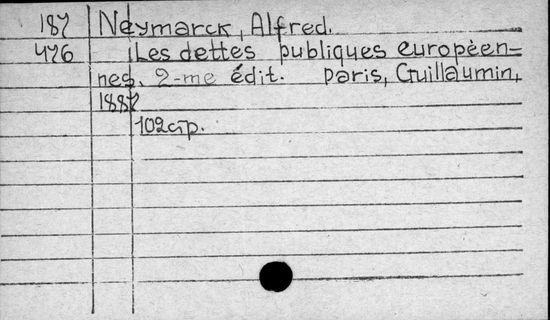 187 Neymarck, Alfred.
476 Les dettes publiques européen-
nes. 2-me édit. Paris, Guillaumin,
1887
102 стр.